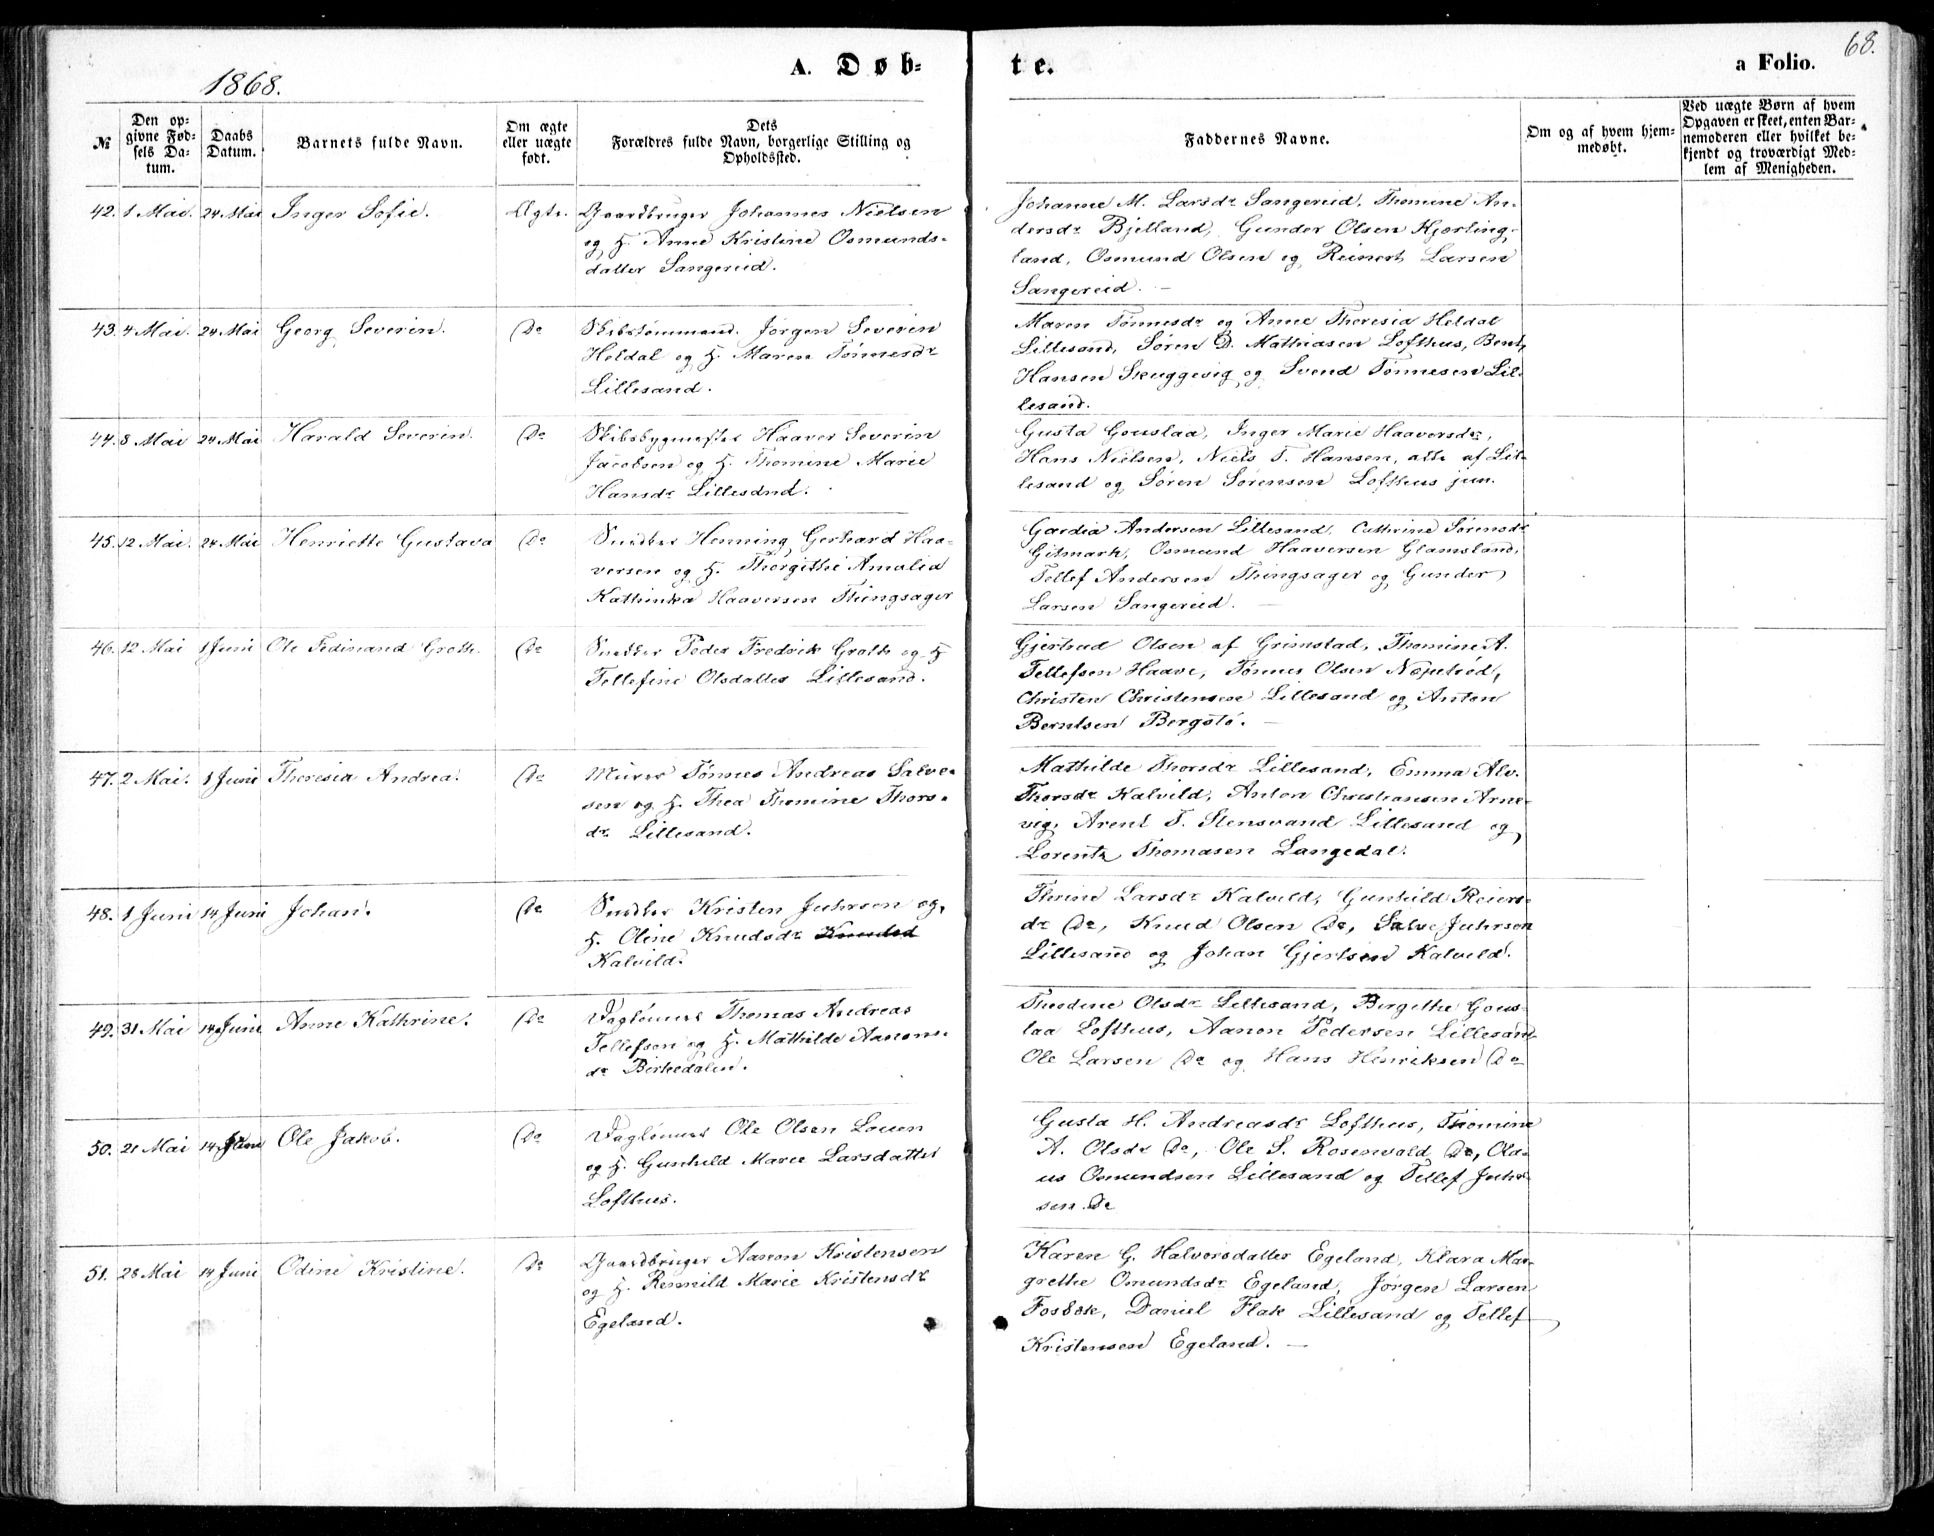 1868.
A. Døb-
te.
a Folio.
68.
№
Den op-
givne Fød-
sels Da-
tum.
Daabs
Datum.
Barnets fulde Navn.
Om ægte
eller uægte
født.
Dets
Forældres fulde Navn, borgerlige Stilling og
Opholdssted.
Faddernes Navne.
Om og af hvem hjem-
medøbt.
Ved uægte Børn af hvem
Opgaven er skeet, enten Bar-
nemoderen eller hvilket be-
kjendt og troværdigt Med-
lem af Menigheden.
42. 1 Mai. 24 Mai Inger Sofie. Ægte.
Gaardbruger Johannes Nielsen
og H. Anne Kristine Osmunds-
datter Sangereid.
Johanne M. Larsdr Sangereid, Thomine An-
dersdr Bjelland, Gunder Olsen Kjørling-
land, Osmund Olsen og Reinert Larsen
Sangereid. —
43. 4 Mai. 24 Mai Georg Severin. Do
Skibstømmand. Jørgen Severin
Heldal og H. Maren Tønnesdr
Lillesand.
Maren Tønnesdr og Anne Theresia Heldal
Lillesand, Søren D. Mathiasen Lofthus, Bent
Hansen Skuggevig og Svend Tønnesen Lil-
lesand.
44. 8 Mai 24 Mai Harald Severin. Do
Skibsbygmester Haaver Severin
Jacobsen og H. Thomine Marie
Hansdr Lillesand.
Gusta Gouslaa, Inger Marie Haaversdr,
Hans Nielsen, Niels T. Hansen, alle af Lil-
lesand og Søren Sørensen Lofthus jun.
45. 12 Mai. 24 Mai Henriette Gustava Do
Snedker Henning Gerhard Haa-
versen og H. Thorgithe Amalia
Kathinka Haaversen Thingsager
Gardia Andersen Lillesand, Cathrine Sørensdr
Gitmark, Osmund Haaversen Glamsland,
Tellef Andersen Thingsager og Gunder
Larsen Sangereid. —
46. 12 Mai 1 Juni Ole Fedinand Groth. Do
Snedker Peder Fredrik Groth og H
Tellefine Olsdatter Lillesand.
Gjertrud Olsen af Grimstad, Thomine A.
Tellefsen Haave, Tønnes Olsen
Christen Christensen Lillesand og Anton
Berntsen Bergstø. —
47. 2 Mai. 1 Juni Theresia Andrea. Do
Murer Tønnes Andreas Salve-
sen og H. Thea Thomine Thors-
dr Lillesand.
Mathilde Thorsdr Lillesand, Emma Alv.
Thorsdr Kalvild, Anton Christiansen Arne-
vig, Arent T. Stensvand Lillesand og
Lorentz Thomasen Langedal.
48. 1 Juni 14 Juni Johan. Do
Snedker Kristen Juhrsen og
H. Oline Knudsdr
Kalvild.
Thrine Larsdr Kalvild, Gunhild Reiers-
dr Do, Knud Olsen Do, Salve Juhrsen
Lillesand og Johan Gjertsen Kalvild.
49. 31 Mai 14 Juni Anne Kathrine. Do
Dagløner Thomas Andreas
Tellefsen og H. Mathilde Aanons-
dr Birkedalen.
Theodine Olsdr Lillesand, Birgithe Gous-
laa Lofthus, Aanon Pedersen Lillesand
Ole Larsen Do og Hans Henriksen Do
50. 21 Mai 14 Juni Ole Jakob. Do
Dagløner Ole Olsen Louen
og H. Gunhild Marie Larsdatter
Lofthus.
Gusta H. Andreasdr Lofthus, Thomine
A. Olsdr Do, Ole S. Rosenvold Do, Ola-
us Osmundsen Lillesand og Tellef Juhr-
sen Do
51. 28 Mai 14 Juni Odine Kristine. Do
Gaardbruger Aanon Kristensen
og H. Remild Marie Kristensdr
Egeland.
Karen G. Halvorsdatter Egeland, Klara Mar-
grethe Omundsdr Egeland, Jørgen Larsen
Fosbæk, Daniel Flak Lillesand og Tellef
Kristensen Egeland. —